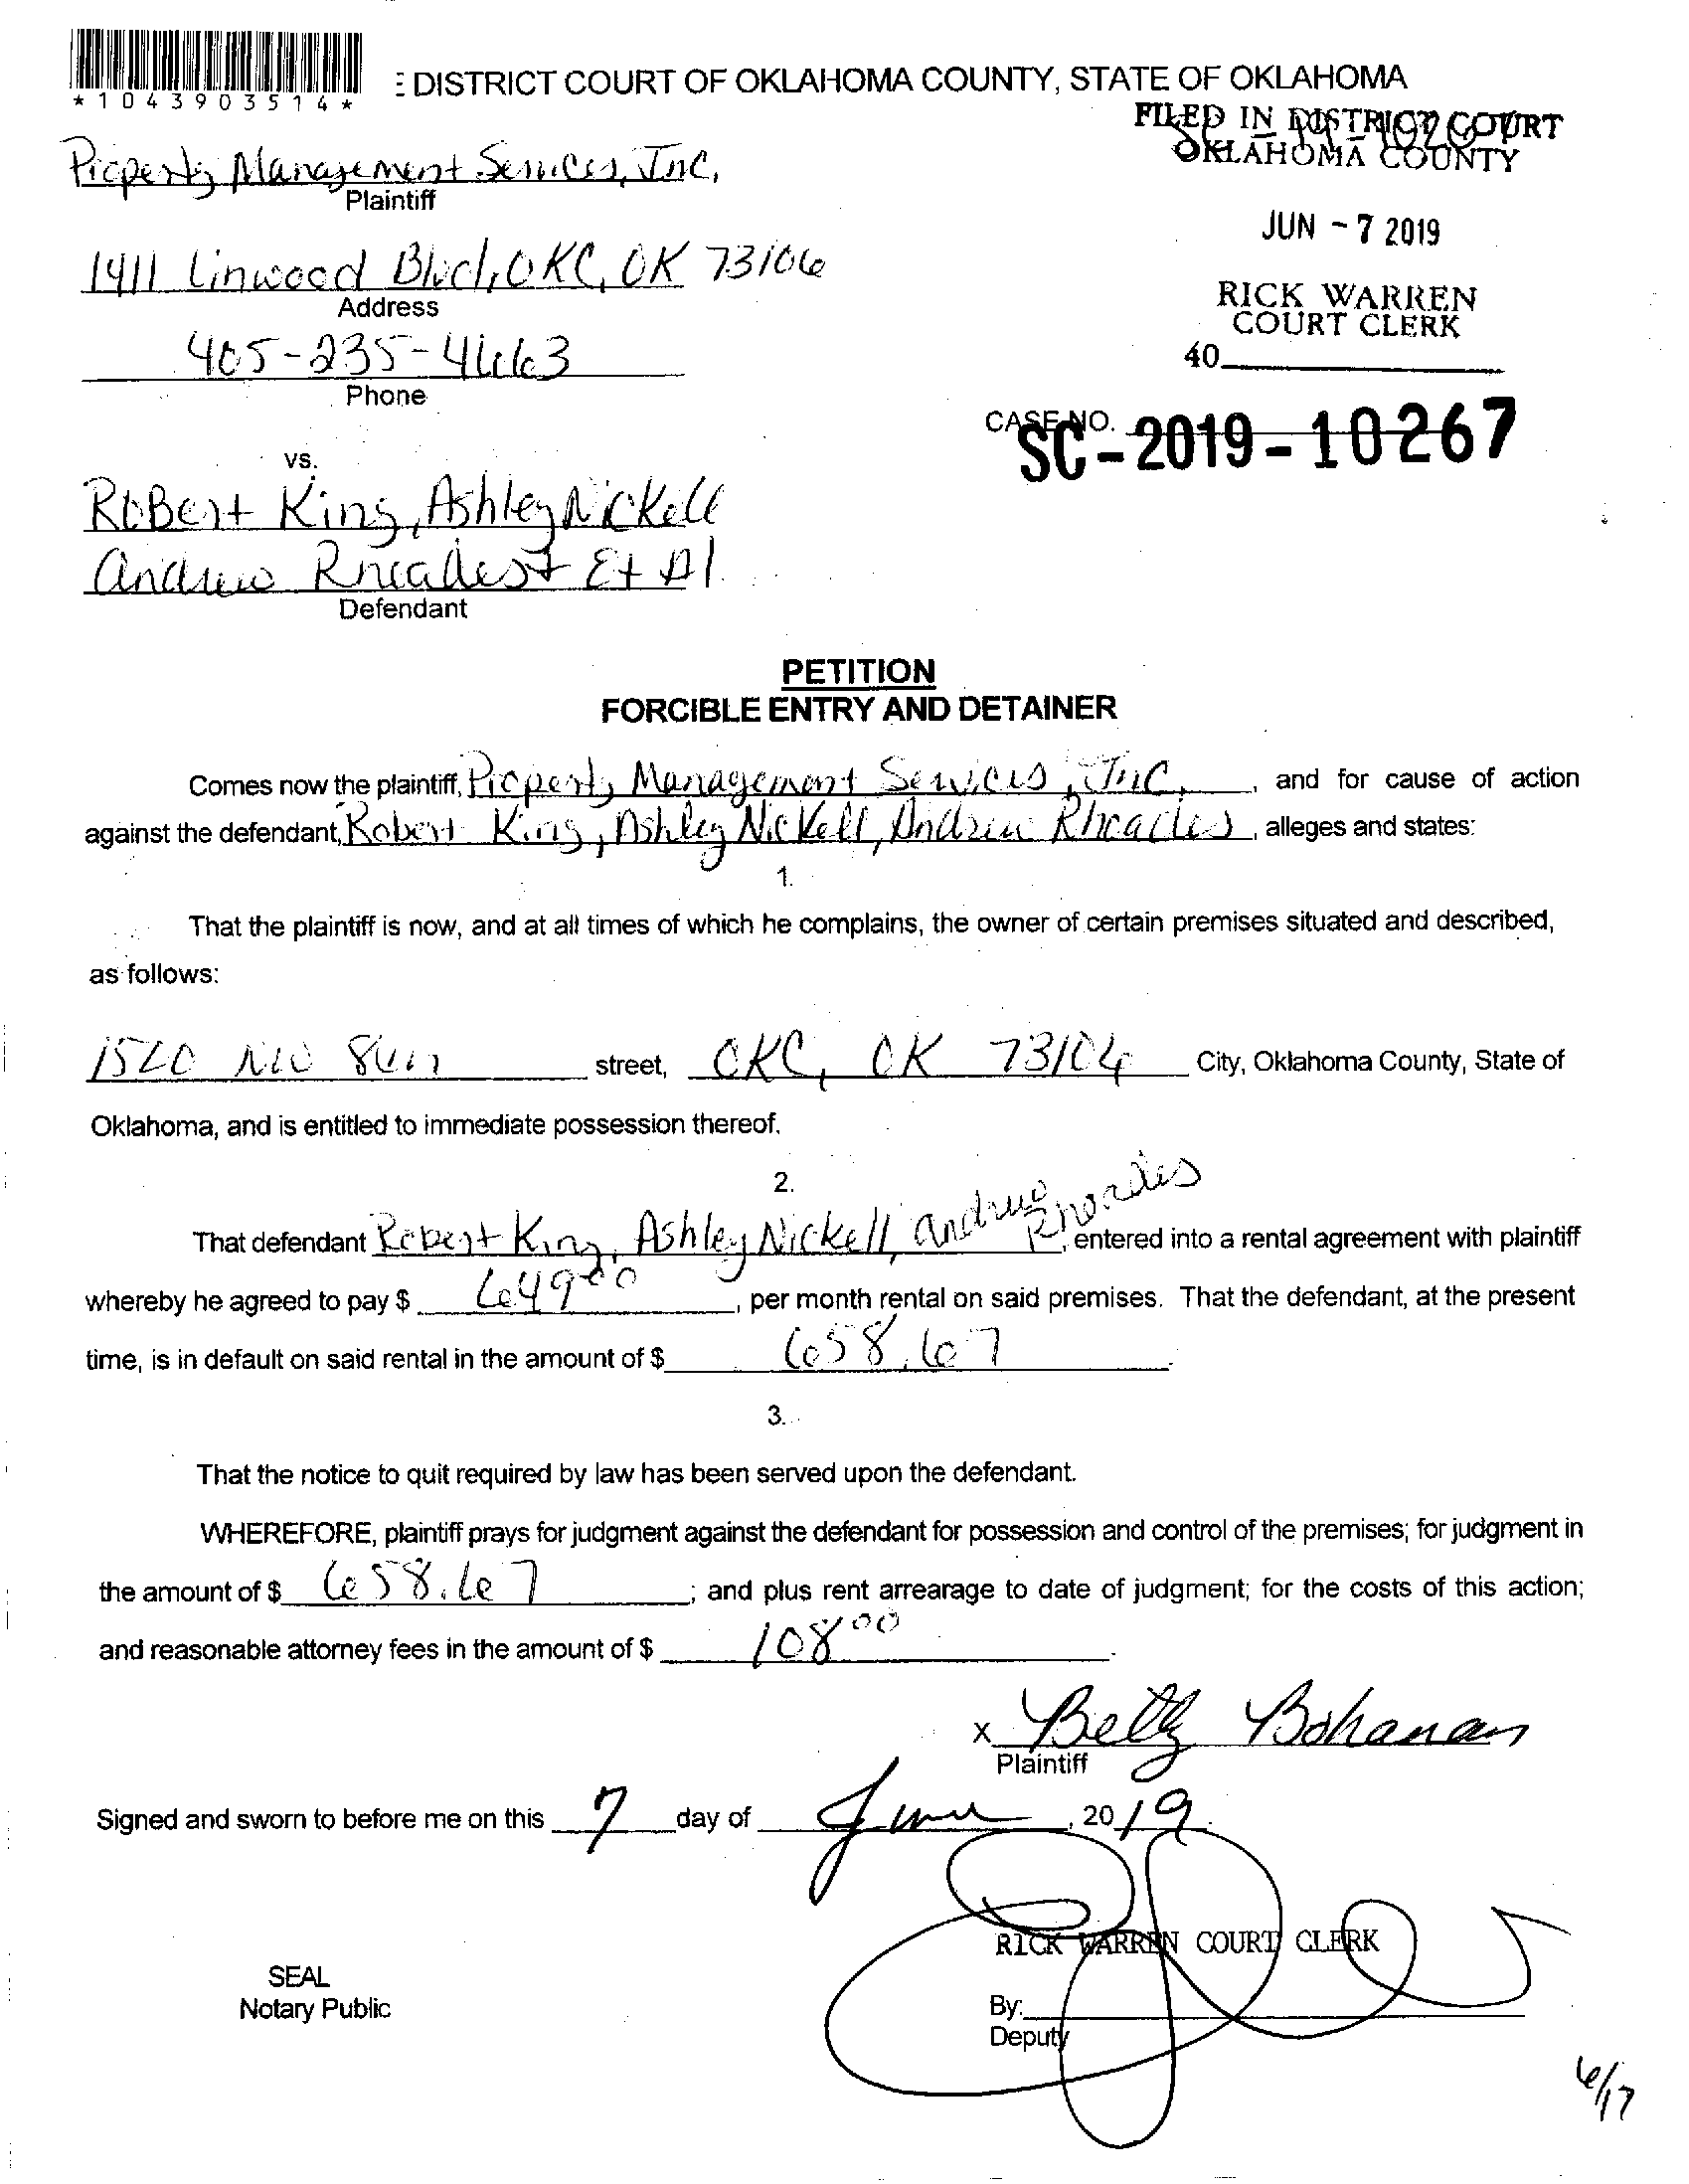 *1043903514*
DISTRICT COURT OF OKLAHOMA COUNTY, STATE OF OKLAHOMA
FILED IN DISTRICT COURT
OKLAHOMA COUNTY
Property Management Services, Inc.
Plaintiff
JUN - 7 2019
1411 Linwood Blvd, OKC, OK 73106
Address
RICK WARREN
COURT CLERK
405-235-4663
Phone
40
CASE NO.
SC-2019-10267
vs.
Robert King, Ashley Nickell
Andrew Rhoades + Et Al.
Defendant
PETITION
FORCIBLE ENTRY AND DETAINER
Comes now the plaintiff, Property Management Services, Inc., and for cause of action
against the defendant, Robert King, Ashley Nickell, Andrew Rhoades, alleges and states:
1.
That the plaintiff is now, and at all times of which he complains, the owner of certain premises situated and described,
as follows:
1520 NW street, OKC, OK 73106 City, Oklahoma County, State of
Oklahoma, and is entitled to immediate possession thereof.
2.
That defendant Robert King, Ashley Nickell, Andrew Rhoades, entered into a rental agreement with plaintiff
whereby he agreed to pay $ 649 00, per month rental on said premises. That the defendant, at the present
time, is in default on said rental in the amount of $ 658.67.
3.
That the notice to quit required by law has been served upon the defendant.
WHEREFORE, plaintiff prays for judgment against the defendant for possession and control of the premises; for judgment in
the amount of $ 658.67; and plus rent arrearage to date of judgment; for the costs of this action;
and reasonable attorney fees in the amount of $ 108 00.
x Betty Bohanan
Plaintiff
Signed and sworn to before me on this 7 day of June, 2019.
RICK WARREN COURT CLERK
SEAL
Notary Public
By:
Deputy
6/17